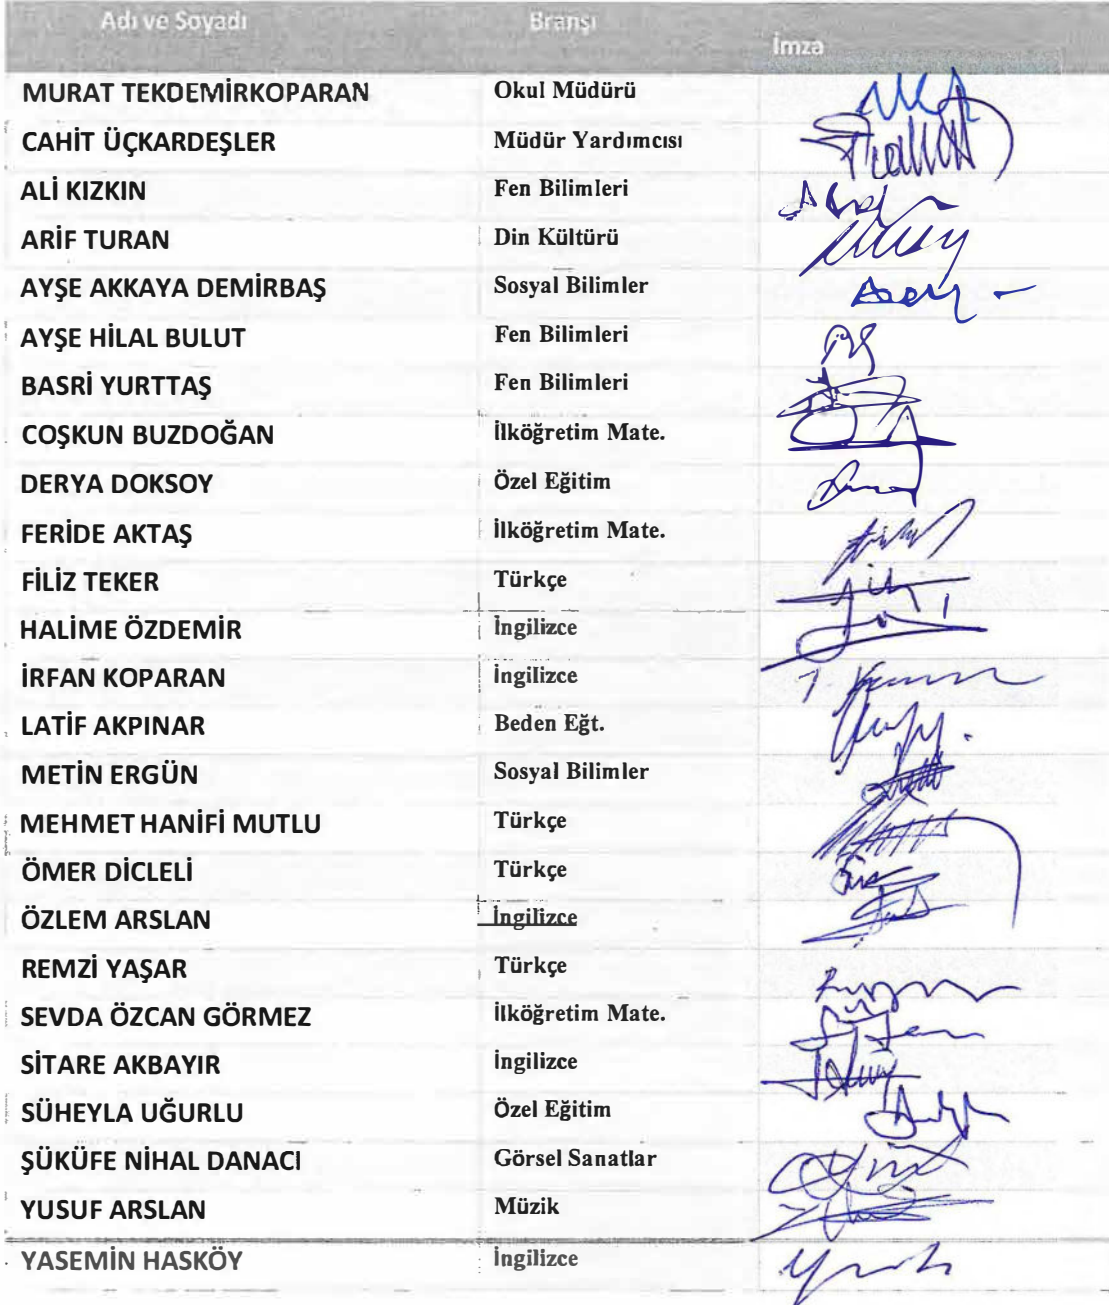 Adı ve Soyadı Branşı İmza
MURAT TEKDEMİRKOPARAN Okul Müdürü
CAHİT ÜÇKARDEŞLER Müdür Yardımcısı
ALİ KIZKIN Fen Bilimleri
ARİF TURAN Din Kültürü
AYŞE AKKAYA DEMİRBAŞ Sosyal Bilimler
AYŞE HİLAL BULUT Fen Bilimleri
BASRİ YURTTAŞ Fen Bilimleri
COŞKUN BUZDOĞAN İlköğretim Mate.
DERYA DOKSOY Özel Eğitim
FERİDE AKTAŞ İlköğretim Mate.
FİLİZ TEKER Türkçe
HALİME ÖZDEMİR İngilizce
İRFAN KOPARAN İngilizce
LATİF AKPINAR Beden Eğt.
METİN ERGÜN Sosyal Bilimler
MEHMET HANİFİ MUTLU Türkçe
ÖMER DİCLELİ Türkçe
ÖZLEM ARSLAN İngilizce
REMZİ YAŞAR Türkçe
SEVDA ÖZCAN GÖRMEZ İlköğretim Mate.
SİTARE AKBAYIR İngilizce
SÜHEYLA UĞURLU Özel Eğitim
ŞÜKÜFE NİHAL DANACI Görsel Sanatlar
YUSUF ARSLAN Müzik
YASEMİN HASKÖY İngilizce